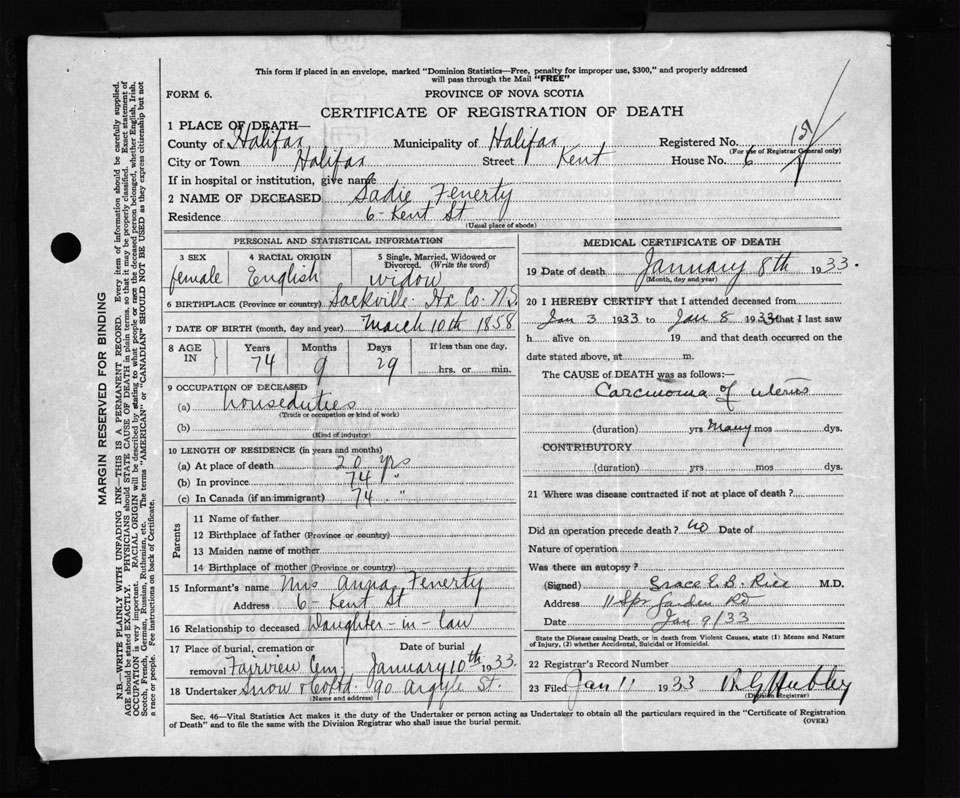 This form if placed in an envelope, marked "Dominion Statistics—Free, penalty for improper use, $300," and properly addressed
will pass through the Mail "FREE"
FORM 6.
PROVINCE OF NOVA SCOTIA
CERTIFICATE OF REGISTRATION OF DEATH
1 PLACE OF DEATH—
County of Halifax Municipality of Halifax Registered No.
(For use of Registrar General only)
City or Town Halifax Street Kent House No. 6
If in hospital or institution, give name
2 NAME OF DECEASED Sadie Fenerty
Residence 6 - Kent St
(Usual place of abode)
PERSONAL AND STATISTICAL INFORMATION
3 SEX 4 RACIAL ORIGIN 5 Single, Married, Widowed or
Divorced. (Write the word)
female English widow
6 BIRTHPLACE (Province or country) Sackville Hx Co. N.S.
7 DATE OF BIRTH (month, day and year) March 10th 1858
8 AGE IN Years Months Days If less than one day,
74 9 29 hrs. or min.
9 OCCUPATION OF DECEASED
(a) houseduties
(Trade or occupation or kind of work)
(b)
(Kind of industry)
10 LENGTH OF RESIDENCE (in years and months)
(a) At place of death 20 yrs
(b) In province 74 "
(c) In Canada (if an immigrant) 74 "
Parents
11 Name of father
12 Birthplace of father (Province or country)
13 Maiden name of mother
14 Birthplace of mother (Province or country)
15 Informant's name Mrs Anna Fenerty
Address 6 - Kent St
16 Relationship to deceased Daughter-in-law
17 Place of burial, cremation or Date of burial
removal Fairview Cem. January 10th 1933.
18 Undertaker Snow & Co Ltd. 90 Argyle St.
(Name and address)
MEDICAL CERTIFICATE OF DEATH
19 Date of death January 8th 1933.
(Month, day and year)
20 I HEREBY CERTIFY that I attended deceased from
Jan 3 1933 to Jan 8 1933 that I last saw
h alive on 19 and that death occurred on the
date stated above, at m.
The CAUSE OF DEATH was as follows:—
Carcinoma of uterus
(duration) yrs many mos dys.
CONTRIBUTORY
(duration) yrs mos dys.
21 Where was disease contracted if not at place of death?
Did an operation precede death? no Date of
Nature of operation
Was there an autopsy?
(Signed) Grace E. B. Rice M.D.
Address 11 Spr Garden Rd
Date Jan 9/33
State the Disease causing Death, or in death from Violent Causes, state (1) Means and Nature
of Injury, (2) whether Accidental, Suicidal or Homicidal.
22 Registrar's Record Number
23 Filed Jan 11 1933 Hubley
(Division Registrar)
Sec. 46—Vital Statistics Act makes it the duty of the Undertaker or person acting as Undertaker to obtain all the particulars required in the "Certificate of Registration
of Death" and to file the same with the Division Registrar who shall issue the burial permit. (OVER)
MARGIN RESERVED FOR BINDING
N.B.—WRITE PLAINLY WITH UNFADING INK—THIS IS A PERMANENT RECORD. Every item of information should be carefully supplied.
AGE should be stated EXACTLY. PHYSICIANS should STATE CAUSE OF DEATH in plain terms, so that it may be properly classified. Exact statement of
OCCUPATION is very important. RACIAL ORIGIN will be described by stating to what people or race the deceased person belonged, whether English, Irish,
Scotch, French, German, Russian, Ruthenian, etc. The terms "AMERICAN" or "CANADIAN" SHOULD NOT BE USED as they express citizenship but not
a race or people. See instructions on back of Certificate.